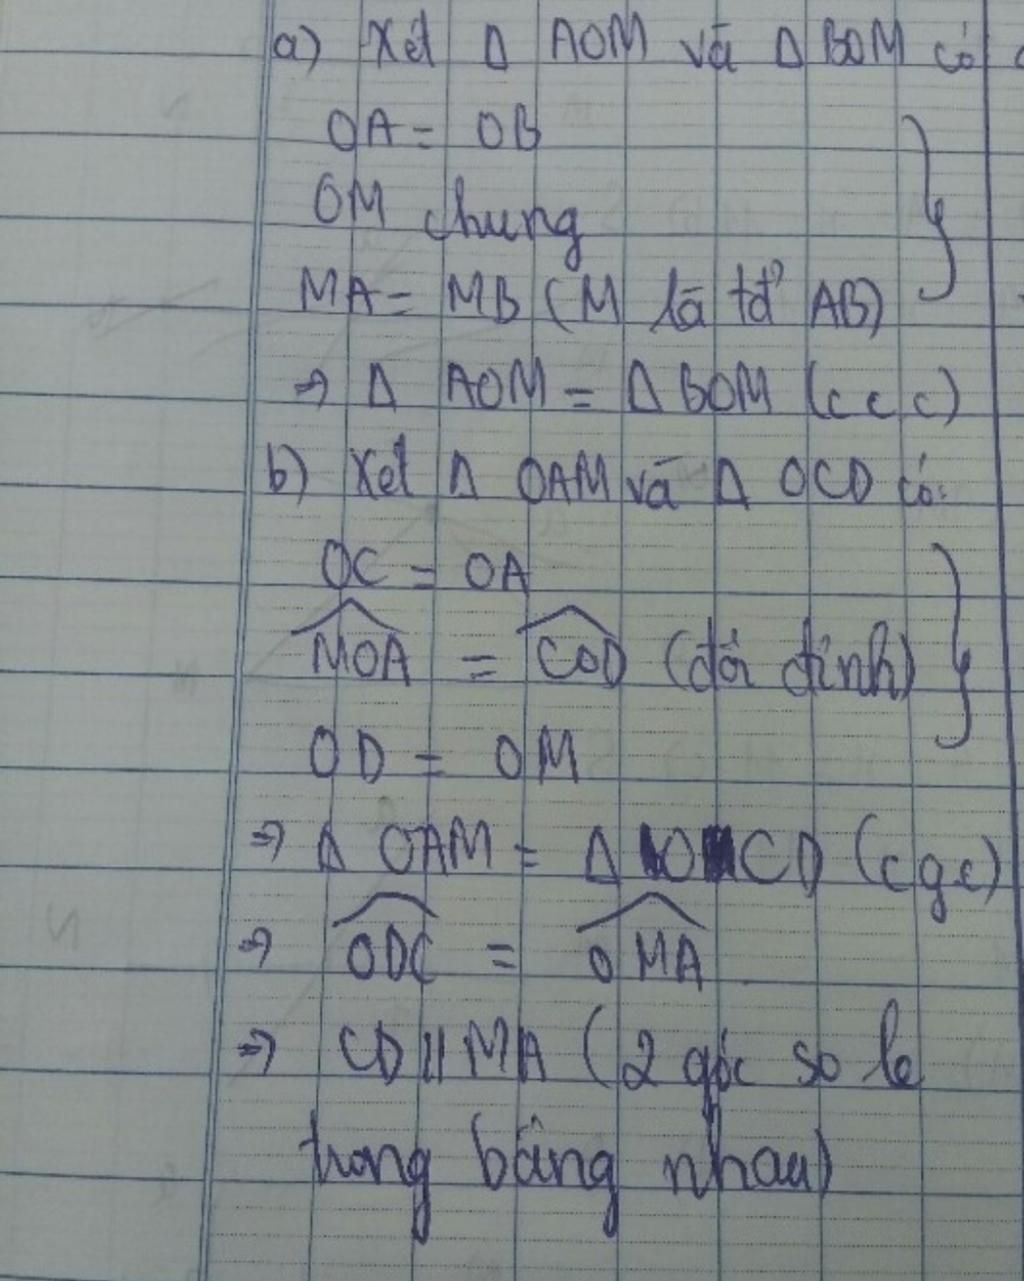 a) Xét Δ AOM và Δ BOM có
OA = OB
OM chung
MA = MB (M là tđ AB)
⇒ Δ AOM = Δ BOM (c c c)
b) Xét Δ OAM và Δ OCD có:
OC = OA
\widehat{MOA} = \widehat{COD} (đối đỉnh)
OD = OM
⇒ Δ OAM = Δ OCD (c g c)
⇒ \widehat{ODC} = \widehat{OMA}
⇒ CD // MA (2 góc so le
trong bằng nhau)